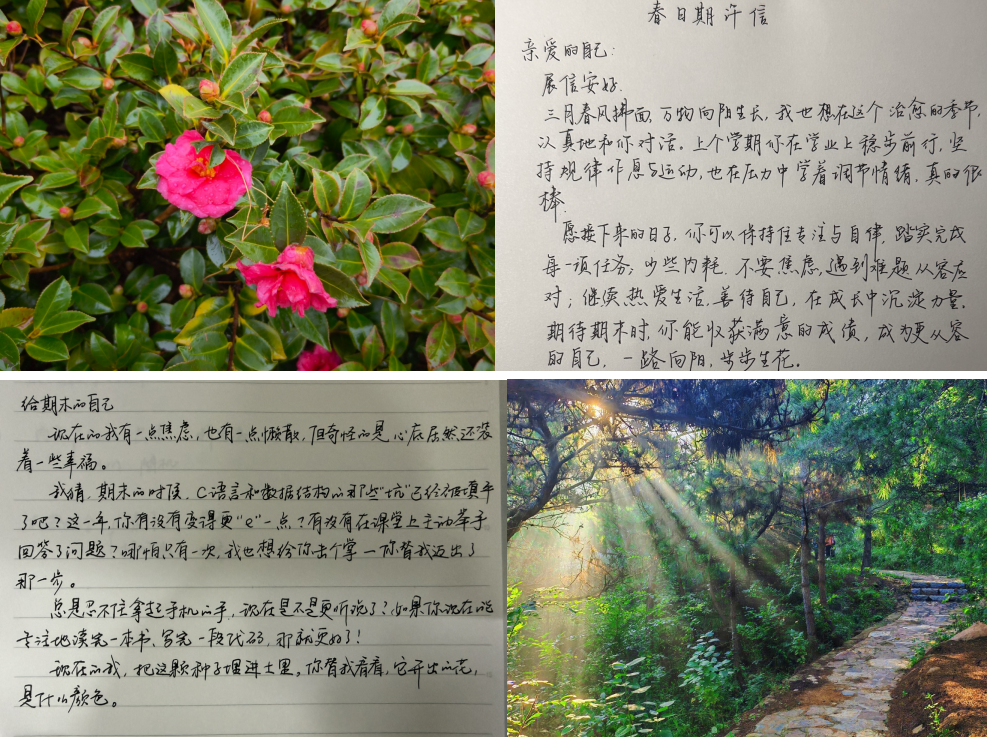 春日期许信
亲爱的自己：
展信安好.
三月春风拂面，万物向阳生长，我也想在这个治愈的季节，
认真地和你对话。上个学期你在学业上稳步前行，坚
持规律作息与运动，也在压力中学着调节情绪，真的很
棒.
愿接下来的日子，你可以保持住专注与自律，踏实完成
每一项任务；少些内耗，不要焦虑，遇到难题从容应
对；继续热爱生活，善待自己，在成长中沉淀力量.
期待期末时，你能收获满意的成绩，成为更从容
的自己，一路向阳，步步生花。
给期末的自己
现在的我有一点焦虑，也有一点懒散，但奇怪的是心底居然还装
着一些幸福。
我猜，期末的时候，C语言和数据结构的那些“坑”已经被填平
了吧？这一年，你有没有变得更“e”一点？有没有在课堂上主动举手
回答了问题？哪怕只有一次，我也想给你击个掌—你替我迈出了
那一步。
总是忍不住拿起手机的手，现在是不是更听说了？如果你现在能
专注地读完一本书，写完一段代码，那就更好了！
现在的我，把这颗种子埋进土里。你替我看看，它开出的花，
是什么颜色。